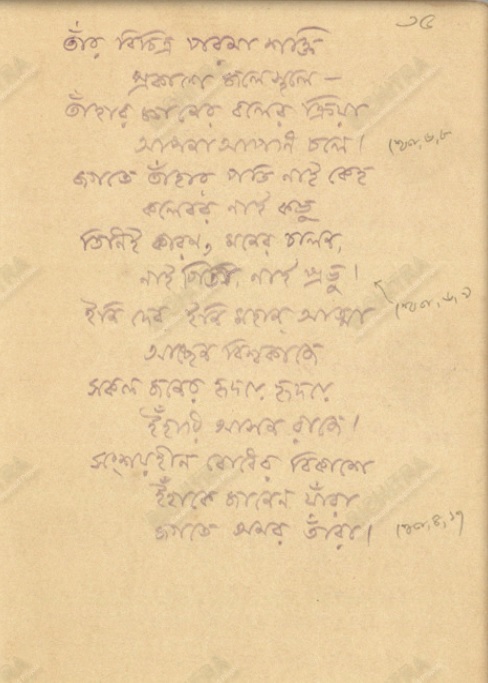 ১৫
তাঁর বিচিত্র পরমা শক্তি
প্রকাশে জলে স্থলে —
তাঁহার জ্ঞানের বলের ক্রিয়া
আপনা আপনি চলে। শ্বেতা, ৬, ৮
জগতে তাঁহার পতি নাই কেহ
কলেবর নাই কভু
তিনিই কারণ, মনের চালন,
নাই পিতা, নাই প্রভু। শ্বেতা, ৬, ৯
ইনি দেব ইনি মহান আত্মা
আছেন বিশ্বকাজে
সকল জনের হৃদয়ে হৃদয়ে
ইঁহারি আসন রাজে।
সংশয়হীন বোধের বিকাশে
ইঁহাকে জানেন যাঁরা
জগতে অমর তাঁরা। শ্বেতা, ৪, ১৭